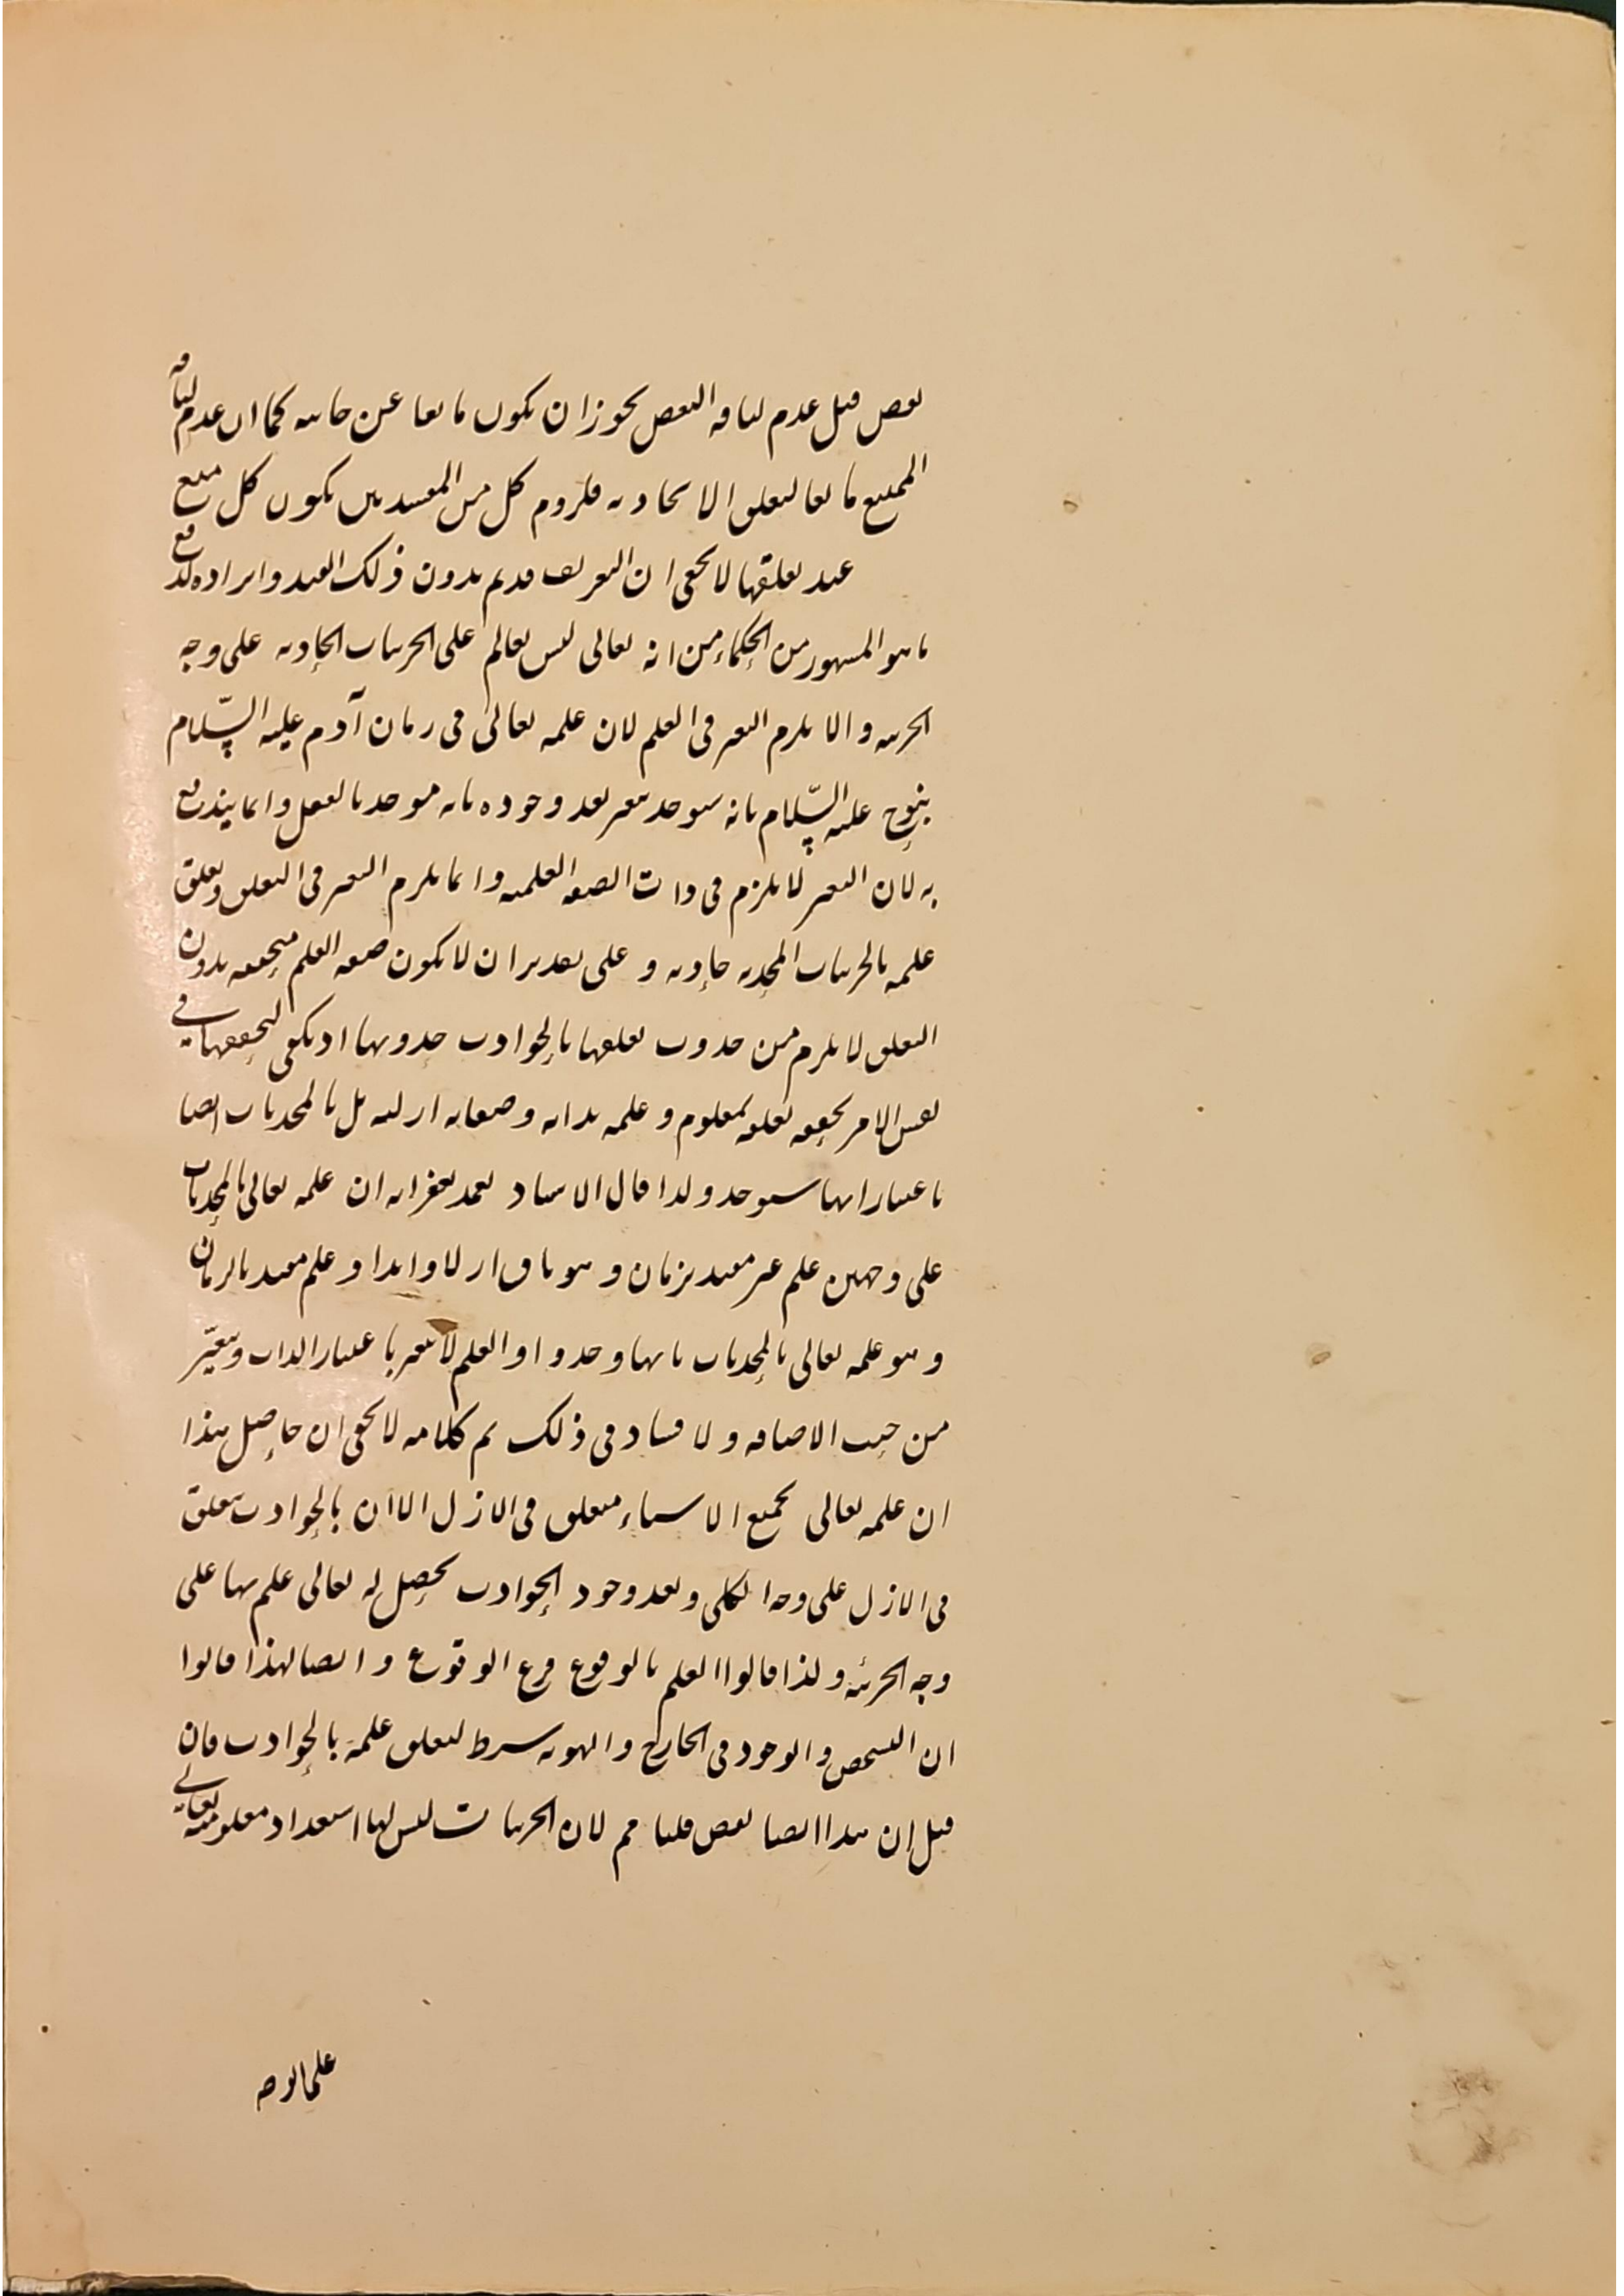 بعض قيل عدم لياقه البعض يجوز ان يكون مانعا عن جانبه كما ان عدم لياقه
الممتنع مانعا لتعلق الايجاديه فلزوم كل من المفسدين يكون كل ممتنع
عند تعلقها لا يخفى ان التعريف قديم بدون ذلك القيد وايراده لدفع
ما هو المشهور من الحكماء من انه تعالى ليس بعالم على الجزئيات الحادثه على وجه
الجزئيه والا يلزم التغير فى العلم لان علمه تعالى فى زمان آدم عليه السّلام
بنوح عليه السّلام بانه سيوجد يتغير بعد وجوده بانه موجد بالفعل وانما يندفع
به لان التغير لا يلزم فى ذات الصفه العلميه وانما يلزم التغير فى التعلق وتعلق
علمه بالجزئيات المتجدده حادثه و على تقدير ان لا يكون صفه العلم متحققه بدون
التعلق لا يلزم من حدوث تعلقها بالحوادث حدوثها اذ يكفى لتحققها فى
نفس الامر تحقق تعلقه بمعلوم وعلمه بذاته وصفاته ازليه بل بالمتجددات ايضا
باعتبار انها سيوجد ولذا قال الاستاد تغمد بغفرانه ان علمه تعالى بالمتجددات
على وجهين علم غير مقيد بزمان و هو باق ازلا وابدا وعلم مقيد بالزمان
و هو علمه تعالى بالمتجددات بانها وجدوا والعلم لا يتغير باعتبار الذات ويتغيّر
من حيث الاضافه ولا فساد فى ذلك تم كلامه لا يخفى ان حاصل هذا
ان علمه تعالى بجميع الاشياء متعلق فى الازل الا ان بالحوادث يتعلق
فى الازل على وجه الكلى وبعد وجود الحوادث يحصل له تعالى علم بها على
وجه الجزئيه ولذا قالوا العلم بالوقوع فرع الوقوع و ايضا لهذا قالوا
ان التشخص والوجود فى الخارج والهويه شرط لتعلق علمه بالحوادث فان
قيل ان هذا ايضا نقص قلنا مم لان الجزئيات ليس لها استعداد معلوميته تعالى
على الوجه